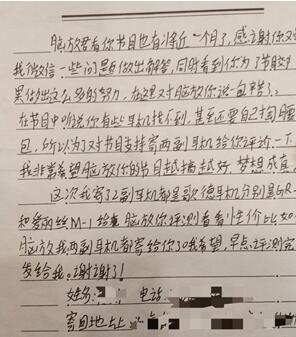 脑放君看你节目也有将近一个月了,感谢你又
我微信一些问题做出解答,同时看到你为了节目
果做出这么多的努力,在这里对脑放你说一句辛苦了。
在节目中听说你有些耳机找不到,甚至还要自己掏腰
包,所以为了对节目支持寄两副耳机给你评价一下
我非常希望脑放你的节目越搞越好,梦想成真。
这次我寄了2副耳机都是歌德耳机分别是GR-
和爱丽丝M-1给 脑放你评测看看性价比如
脑放我两副耳机都寄给你了我希望,早点评测完
发给我。谢谢了!
姓名: 电话:
寄回地址: